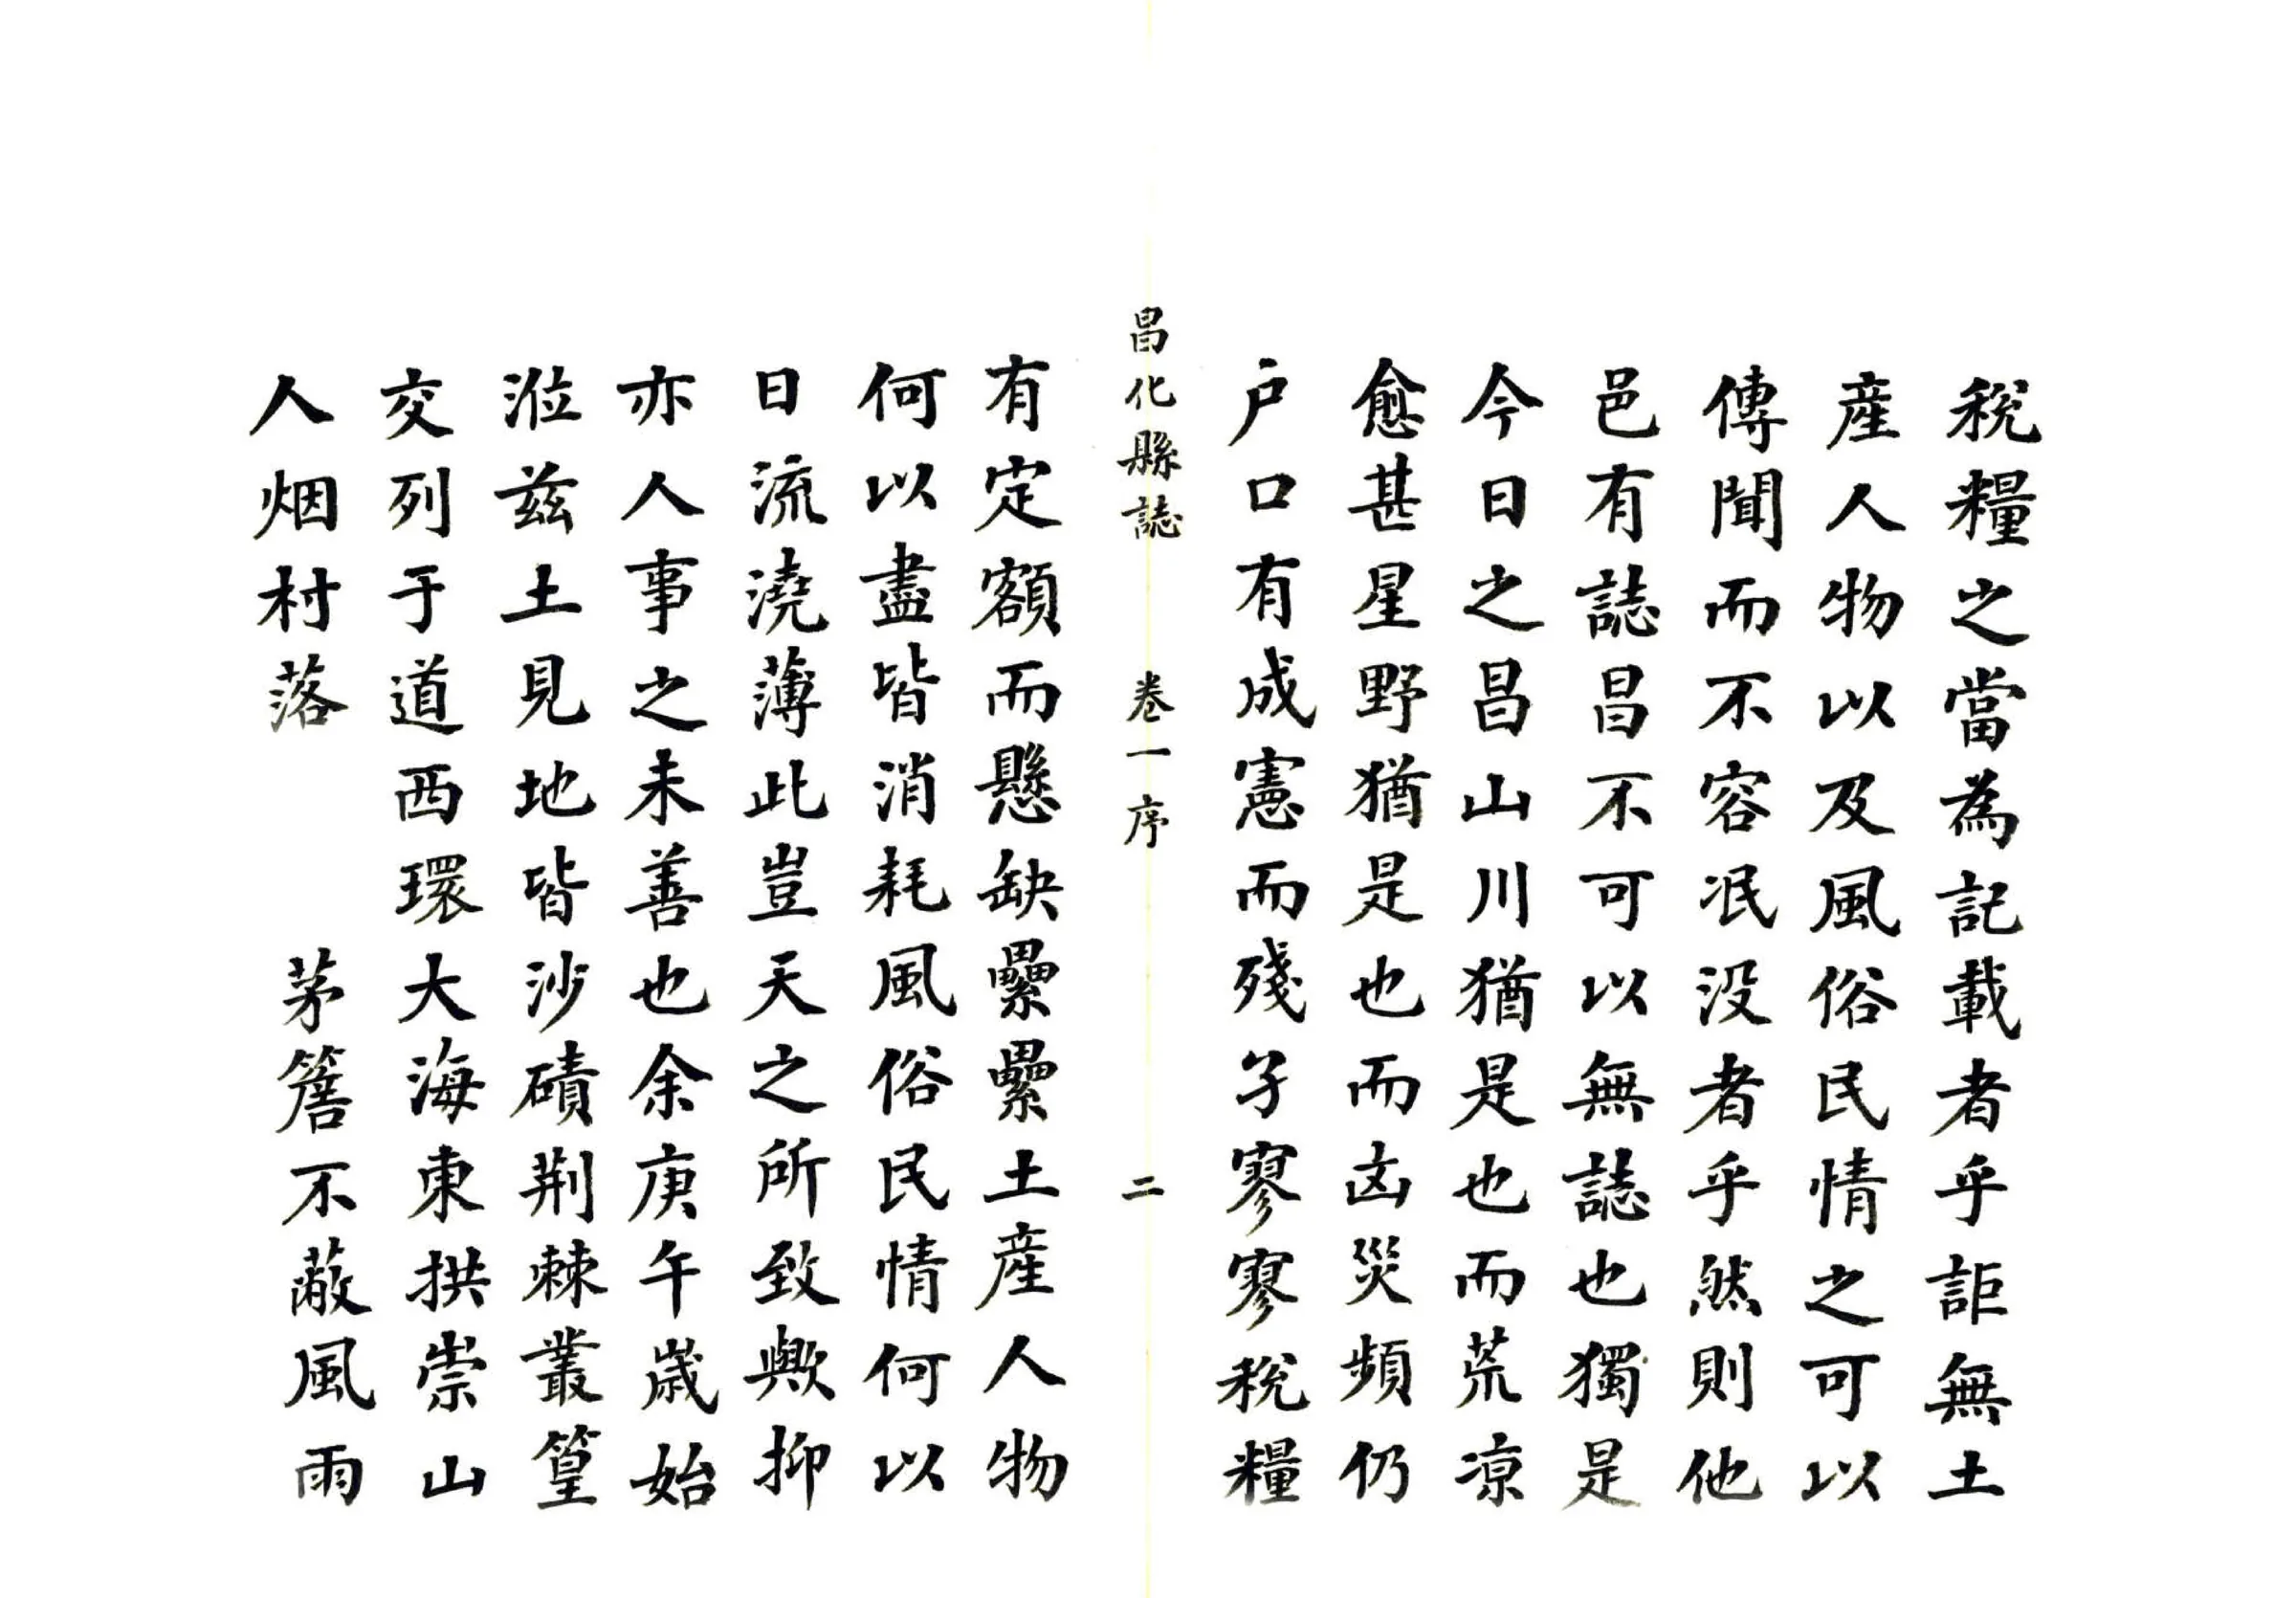 稅糧之當為記載者乎詎無土
産人物以及風俗民情之可以
傳聞而不容泯没者乎然則他
邑有誌昌不可以無誌也獨是
今日之昌山川猶是也而荒凉
愈甚星野猶是也而凶災頻仍
户口有成憲而殘孑寥寥稅糧
昌化縣誌 卷一序 二
有定額而懸缺纍纍土産人物
何以盡皆消耗風俗民情何以
日流澆薄此豈天之所致歟抑
亦人事之未善也余庚午歲始
涖兹土見地皆沙磧荆棘叢篁
交列于道西環大海東拱崇山
人烟村落 茅簷不蔽風雨